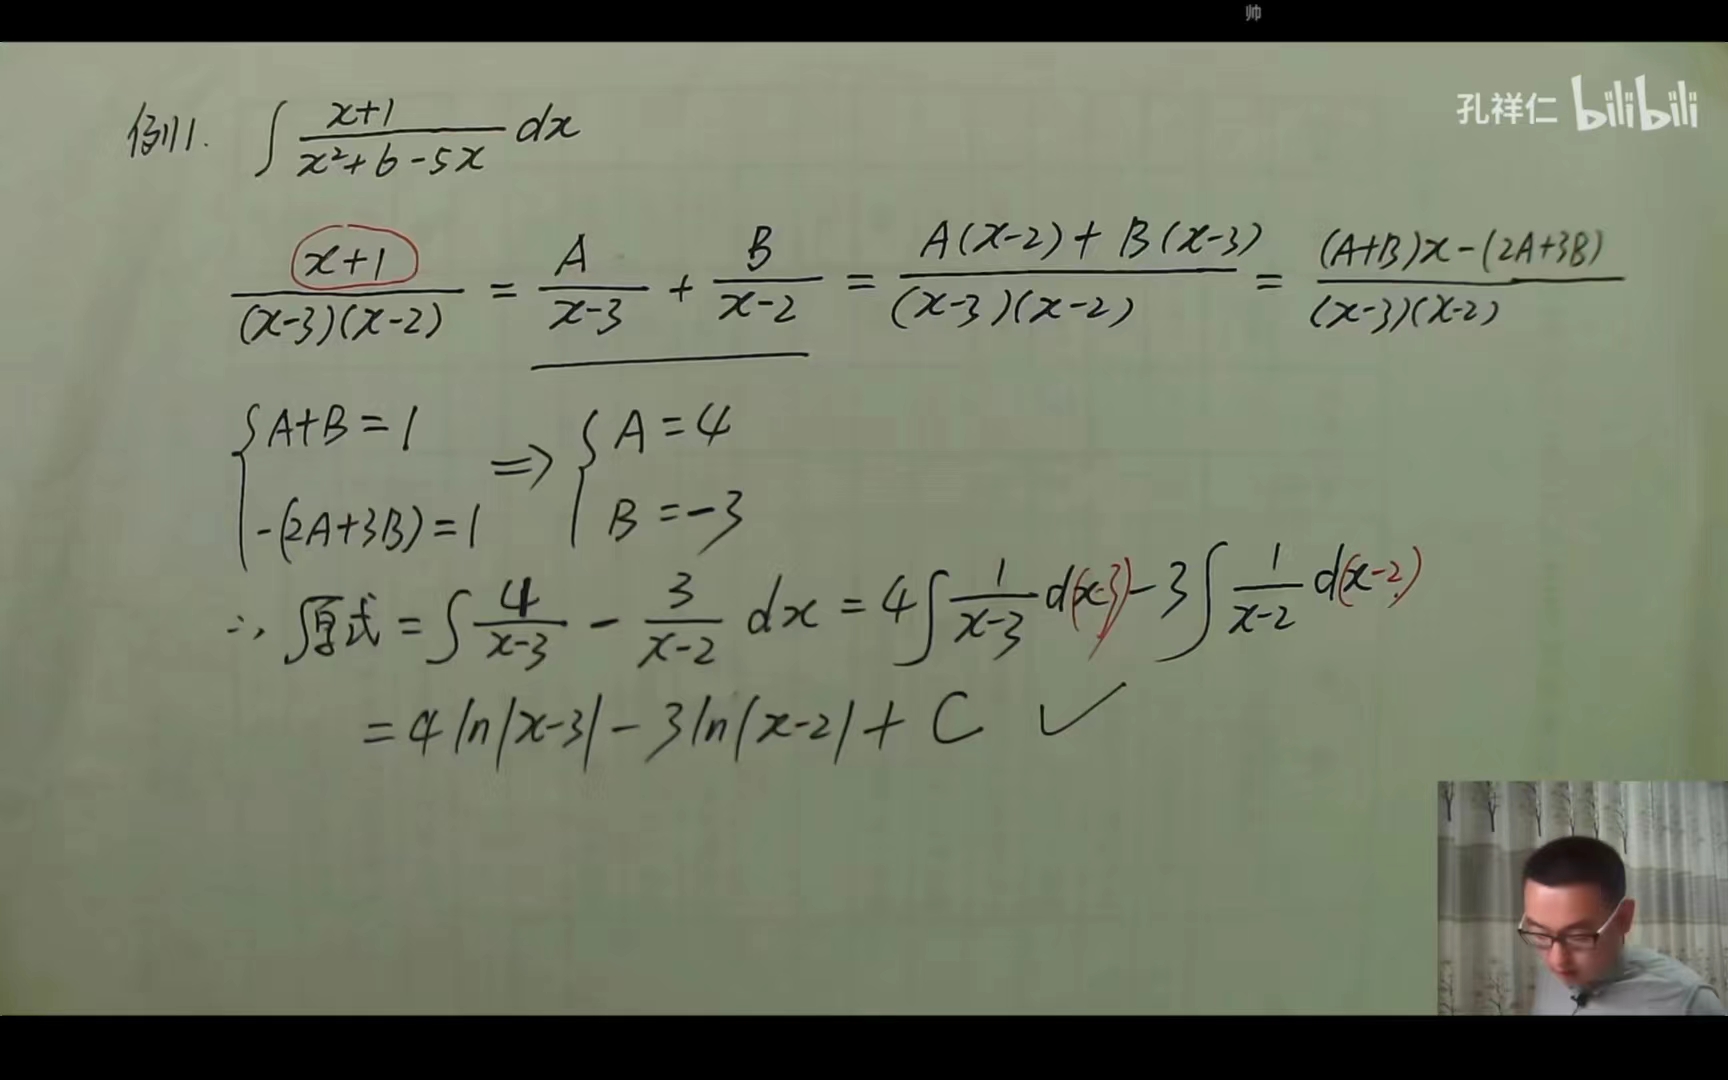 帅
孔祥仁 bilibili
例1. ∫ (x+1)/(x²+6-5x) dx
(x+1)/((x-3)(x-2)) = A/(x-3) + B/(x-2) = (A(x-2)+B(x-3))/((x-3)(x-2)) = ((A+B)x-(2A+3B))/((x-3)(x-2))
{ A+B=1 ⇒ { A=4
-(2A+3B)=1 B=-3
∴ 原式 = ∫ 4/(x-3) - 3/(x-2) dx = 4∫ 1/(x-3) d(x-3) - 3∫ 1/(x-2) d(x-2)
= 4 ln|x-3| - 3 ln|x-2| + C ✓